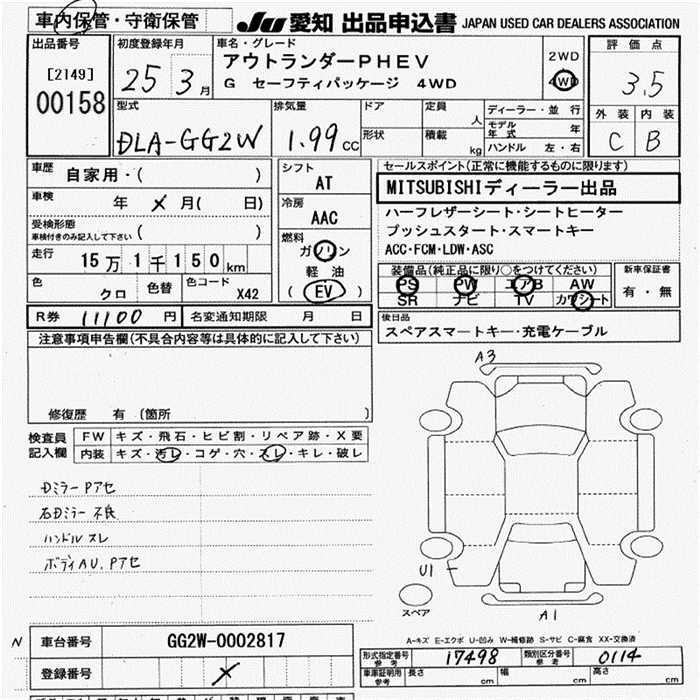 車内保管・守衛保管 JU 愛知 出品申込書 JAPAN USED CAR DEALERS ASSOCIATION
出品番号
[2149]
00158
初度登録年月
25 3月
車名・グレード
アウトランダーPHEV
G セーフティパッケージ 4WD
2WD
4WD
評価点
3.5
外装 内装
C B
型式
DLA-GG2W
排気量
1.99 cc
ドア
形状
定員 人
積載 kg
ディーラー・並行
モデル年式 年
ハンドル 左・右
車歴 自家用・( )
車検 年 メ 月( 日)
受検形態
車検付きのみ記入して下さい ( )
走行 15万1千150km
色 クロ 色替 色コード X42
シフト
AT
冷房
AAC
燃料
ガソリン
軽油
(EV)
セールスポイント(正常に機能するものに限ります)
MITSUBISHIディーラー出品
ハーフレザーシート・シートヒーター
プッシュスタート・スマートキー
ACC・FCM・LDW・ASC
装備品(純正品に限り○をつけてください)
PS PW エアB AW
SR ナビ TV カワシート
新車保証書
有・無
後日品
スペアスマートキー・充電ケーブル
R券 11100 円 名変通知期限 月 日
注意事項申告欄(不具合内容等は具体的に記入して下さい)
修復歴 有(箇所 )
検査員記入欄
FW キズ・飛石・ヒビ割・リペア跡・X要
内装 キズ・汚レ・コゲ・穴・スレ・キレ・破レ
Dミラー Pアセ
右Dミラー 不良
ハンドル スレ
ボディAU.Pアセ
A3
U1
スペア
A1
A-キズ E-エクボ U-凹み W-補修跡 S-サビ C-腐食 XX-交換済
N
車台番号 GG2W-0002817
登録番号
型式指定番号
参考
17498
類別区分番号
参考
0114
車庫証明用
参考
長さ cm 幅 cm 高さ cm